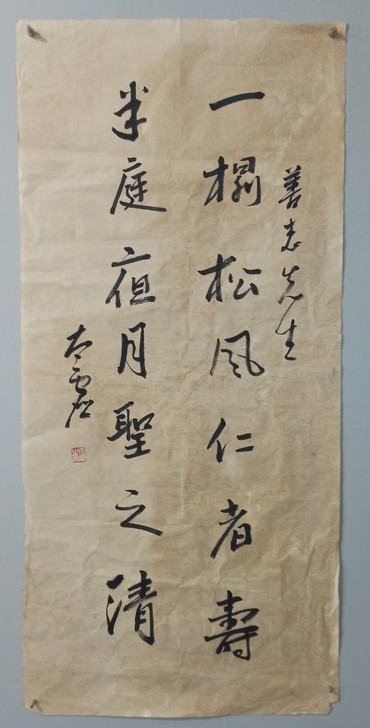 善志先生
一榻松風仁者壽
半庭宿月聖之清
太虛